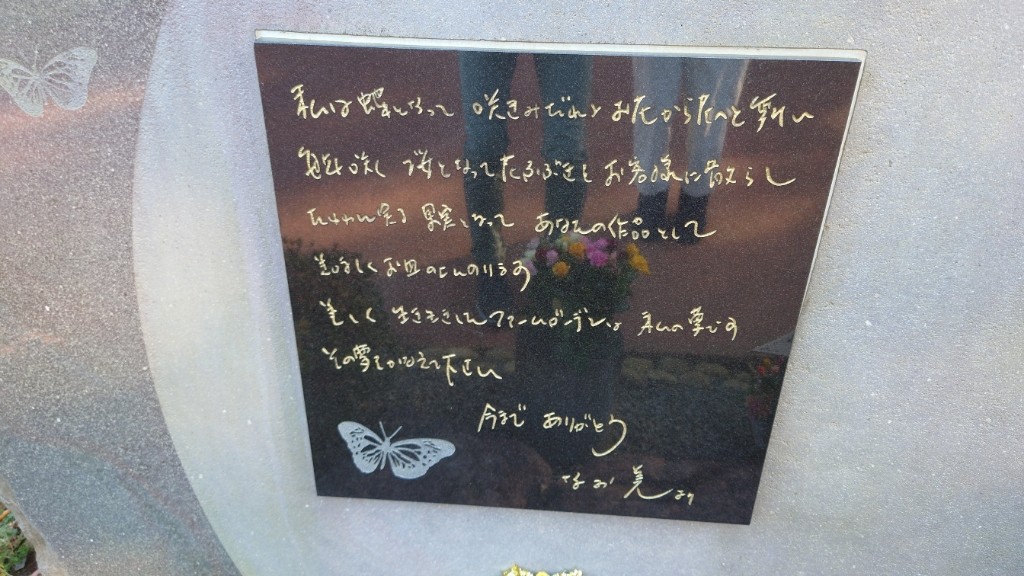 私は蝶となって 咲きみだれる お花からお花へと舞い
桜となって花ふぶきを お客様に散らし
たわわに実る 果実となって あなたの作品として
美味しくお皿にのります
美しく 生き生きしたファームガーデンは 私の夢です
その夢をかなえて下さい
今まで ありがとう
なお美より